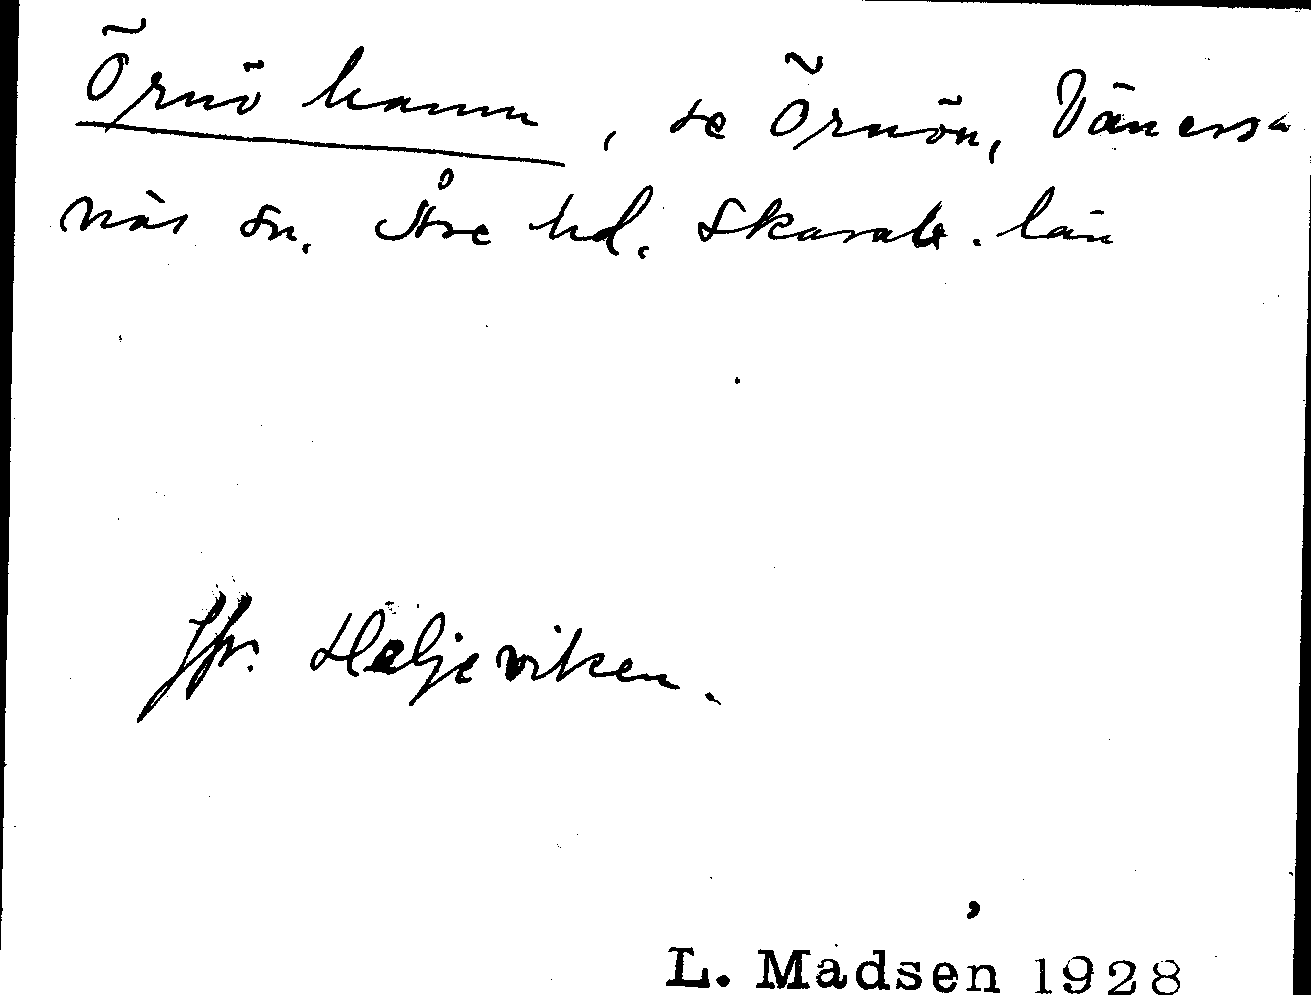 Örnö hamn, se Örnön, Väners-
näs sn. Åse hd. Skarab. län
Jfr. Heljeviken.
L. Madsen 1928